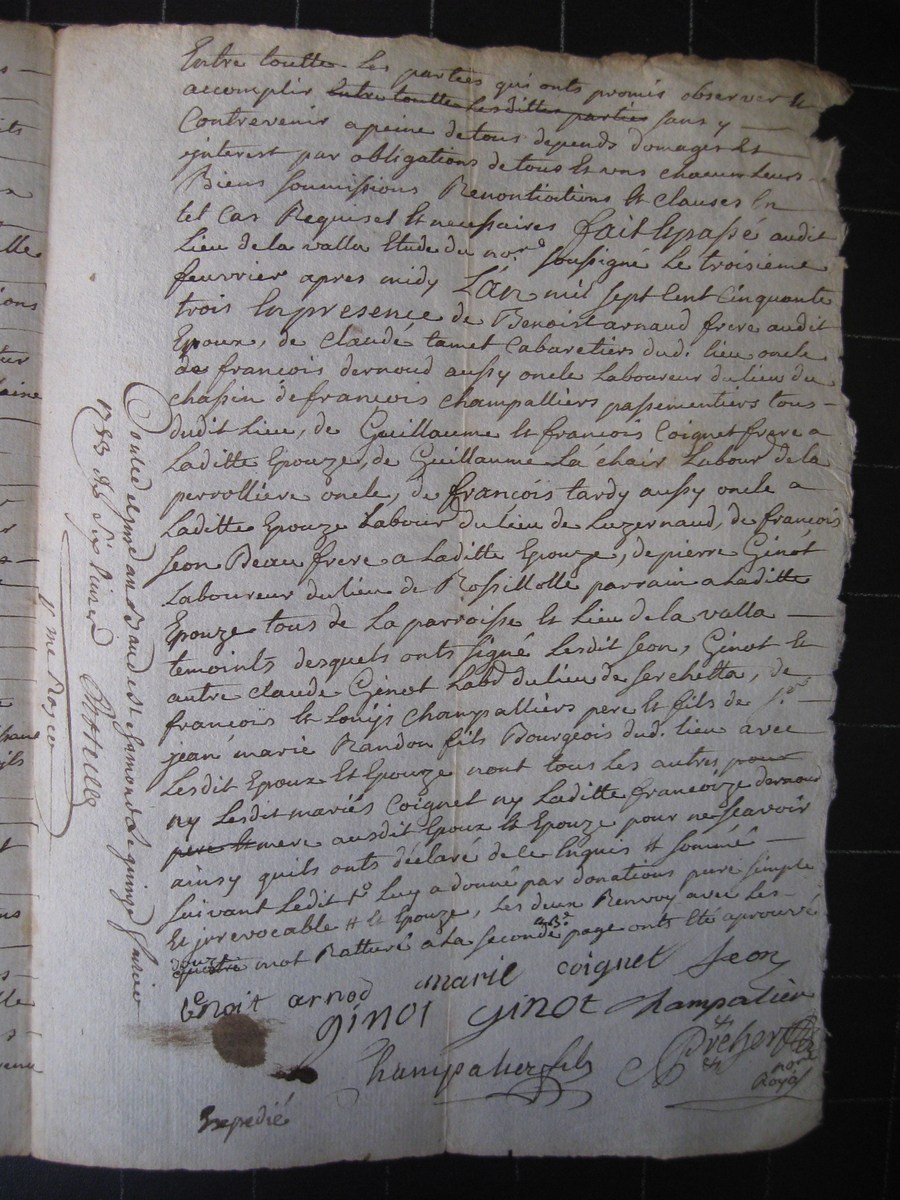 Entre toutte les parties qui onts promis observer et
accomplir entre toutte lesdittes parties sans y
Contrevenir a peine de tous depends domages et
interest par obligations de tous et uns chacun leurs
Biens soumissions Renontiations et clauses en
tel cas Requises et necessaires fait et passé audit
Lieu de la valla Etude du no.re soussigné le troisieme
feuvrier apres midy L'an mil sept cent cinquante
trois En presence de Benoist arnaud frere audit
Epoux, de claude tamet Cabaretiers dud. lieu oncle
de francois dernoud aussy oncle Laboureur du lieu du
chassin de francois champalliers passementiers tous
dudit Lieu, de Guillaume et francois Coignet frere a
Laditte Epouze, de Guillaume La chair Labour. de la
perrolliere oncle, de francois tardy aussy oncle a
Laditte Epouze Labour. du lieu de Luzernaud, de francois
seon Beau frere a Laditte Epouze, de pierre Ginot
Laboureur du lieu de Rossillolle parrain a Laditte
Epouze tous de La parroisse et Lieu de la valla
temoints desquels onts signé Lesdit seon, Ginot et
autre claude Ginot Labr. du lieu de serchetta, de
francois et Louis champalliers pere et fils de s.r
jean marie Randon fils Bourgeois dud. lieu avec
Lesdit Epoux et Epouze nont tous les autres pour
ny Lesdit mariés Coignet ny Laditte francoize dernoud
pere et mere ausdit Epoux et Epouze pour ne scavoir
ainsy quils onts déclaré de ce Enquis et sommé
suivant Ledit Luy a donné par donations pure simple
Et irrevocable # et Epouze, Les deux Renvoy avec Les
douze
quatre motRatturé a La seconde page onts été aprouvé
benoit arnod marie coignet Seon
ginot ginot Champalier
Champalier fils
no.re
Royal
Expedié
Controlé et
1753